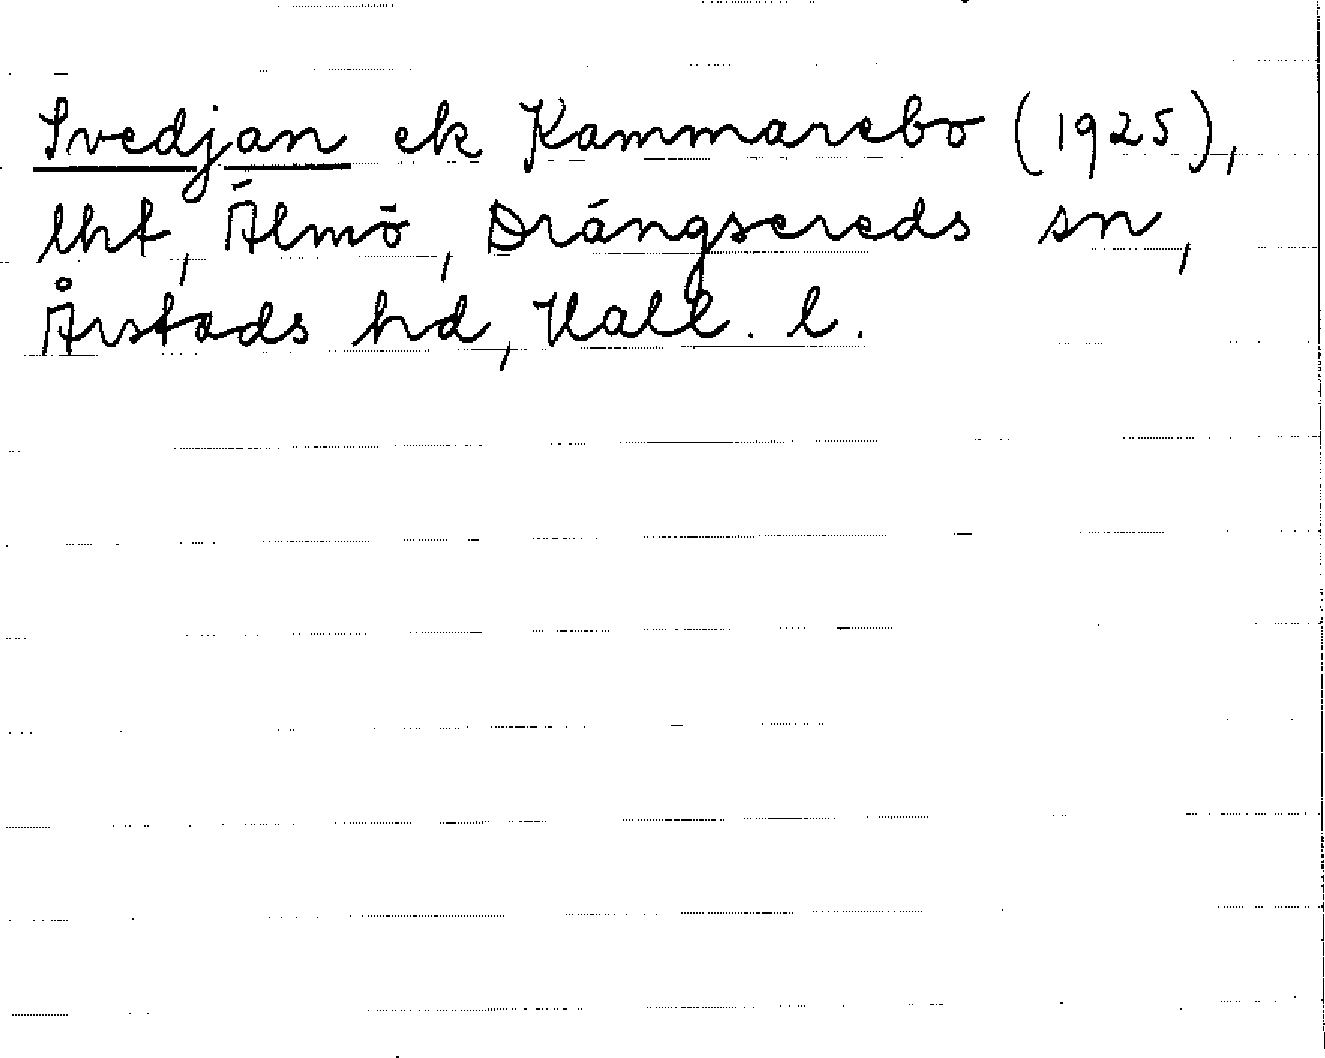 Svedjan ek Kammarebo (1925),
lht, Älmö, Drängsereds sn,
Årstads hd, Hall. l.